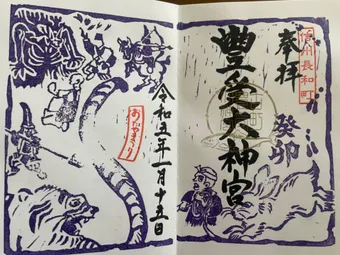 奉拝
信州長和町
癸卯
豊受大神宮
令和五年一月十五日
おたやまつり